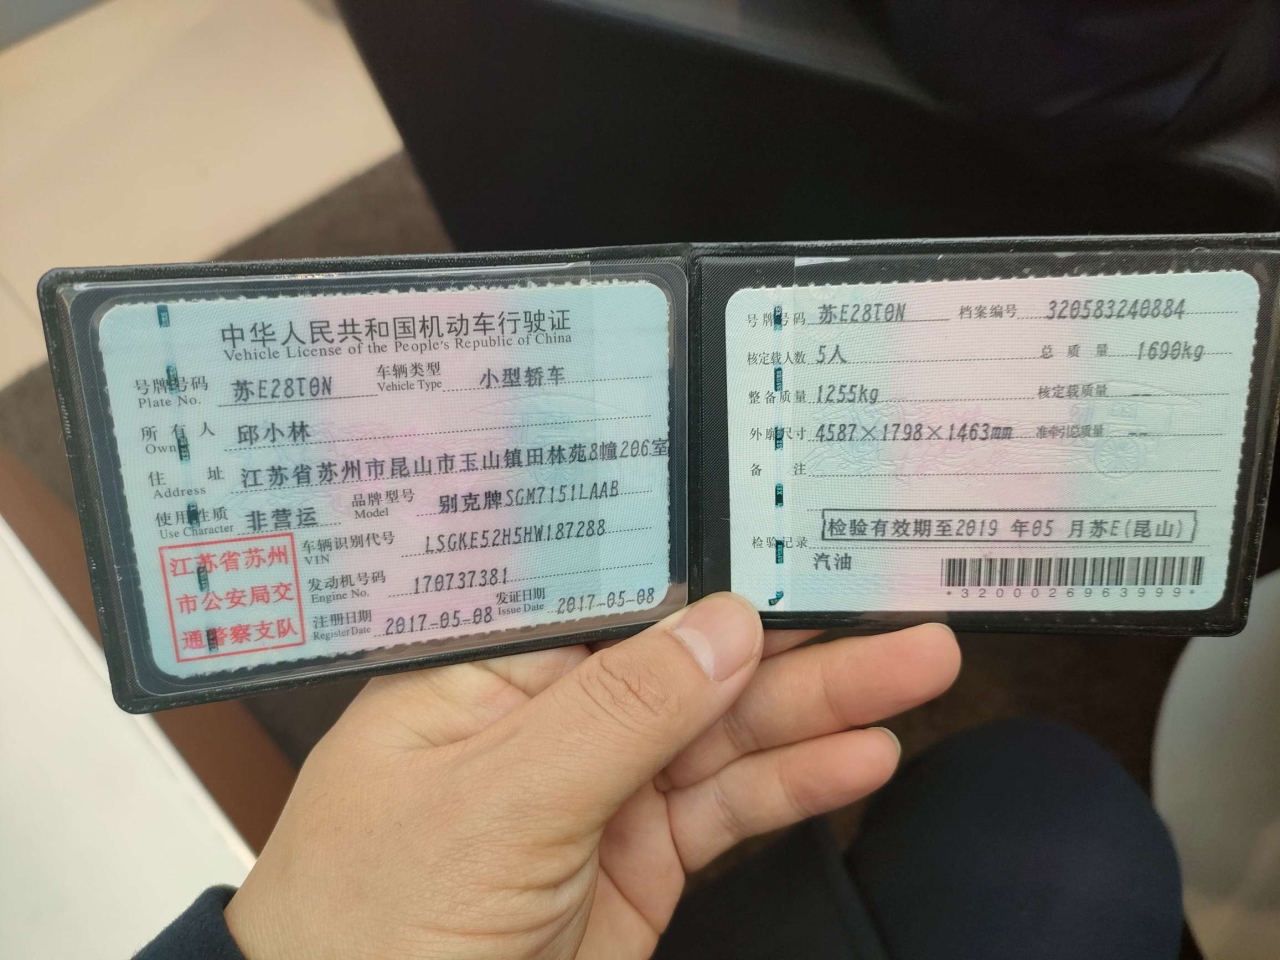 中华人民共和国机动车行驶证
Vehicle License of the People's Republic of China
号牌号码 苏E28T0N 车辆类型 小型轿车
Plate No. Vehicle Type
所有人 邱小林
Owner
住址 江苏省苏州市昆山市玉山镇田林苑8幢206室
Address
使用性质 非营运 品牌型号 别克牌SGM7151LAAB
Use Character Model
江苏省苏州市公安局交通警察支队
车辆识别代号 LSGKE52H5HW187288
VIN
发动机号码 170737381
Engine No.
注册日期 2017-05-08 发证日期 2017-05-08
Register Date Issue Date
号牌号码 苏E28T0N 档案编号 320583240884
核定载人数 5人 总质量 1690kg
整备质量 1255kg 核定载质量 --
外廓尺寸 4587×1798×1463mm 准牵引总质量 --
备注
检验记录 检验有效期至2019年05月苏E(昆山)
汽油
*3200026963999*